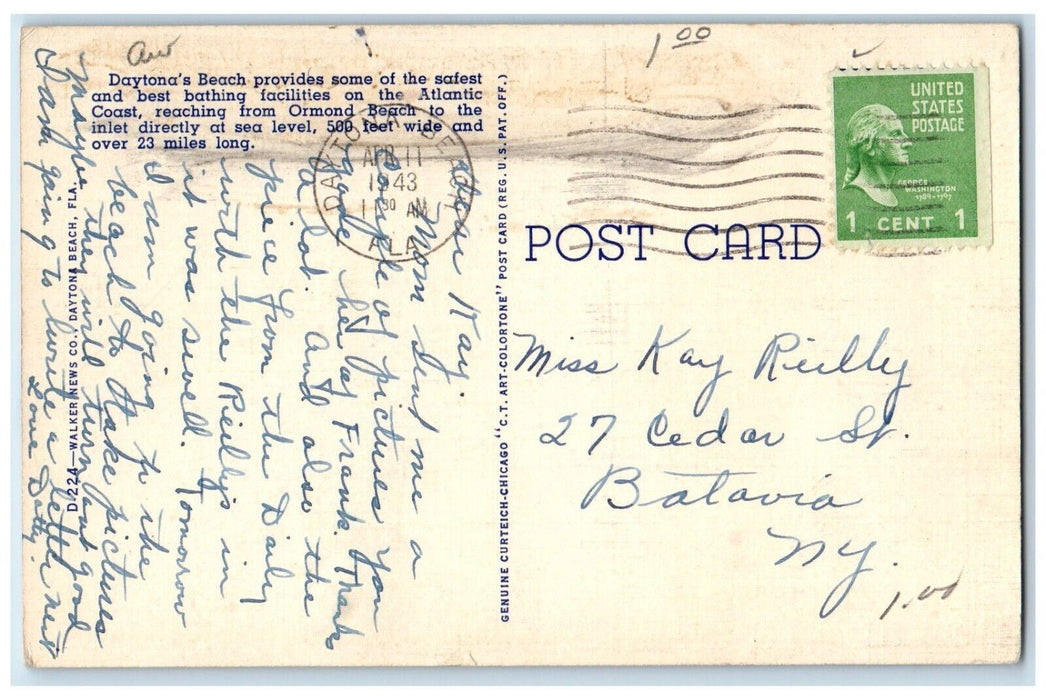 aw
1 00
Daytona's Beach provides some of the safest
and best bathing facilities on the Atlantic
Coast, reaching from Ormond Beach to the
inlet directly at sea level, 500 feet wide and
over 23 miles long.
DAYTONA BEACH
APR 11
1943
11 30 AM
FLA
UNITED
STATES
POSTAGE
GEORGE
WASHINGTON
1789-1797
1 CENT 1
POST CARD
D-224—WALKER NEWS CO., DAYTONA BEACH, FLA.
GENUINE CURTEICH-CHICAGO "C.T. ART-COLORTONE" POST CARD (REG. U.S. PAT. OFF.)
Dear Kay.
Mom sent me a
couple of pictures you
made her of Frank. Thanks
a lot. And also the
piece from the Daily
with the Reilly's in
it was swell. Tomorrow
I am going to the
beach to take pictures
maybe they will turn out good
I am going to write a letter next
Love Dotty.
Miss Kay Reilly
27 Cedar St.
Batavia
NY.
1.00